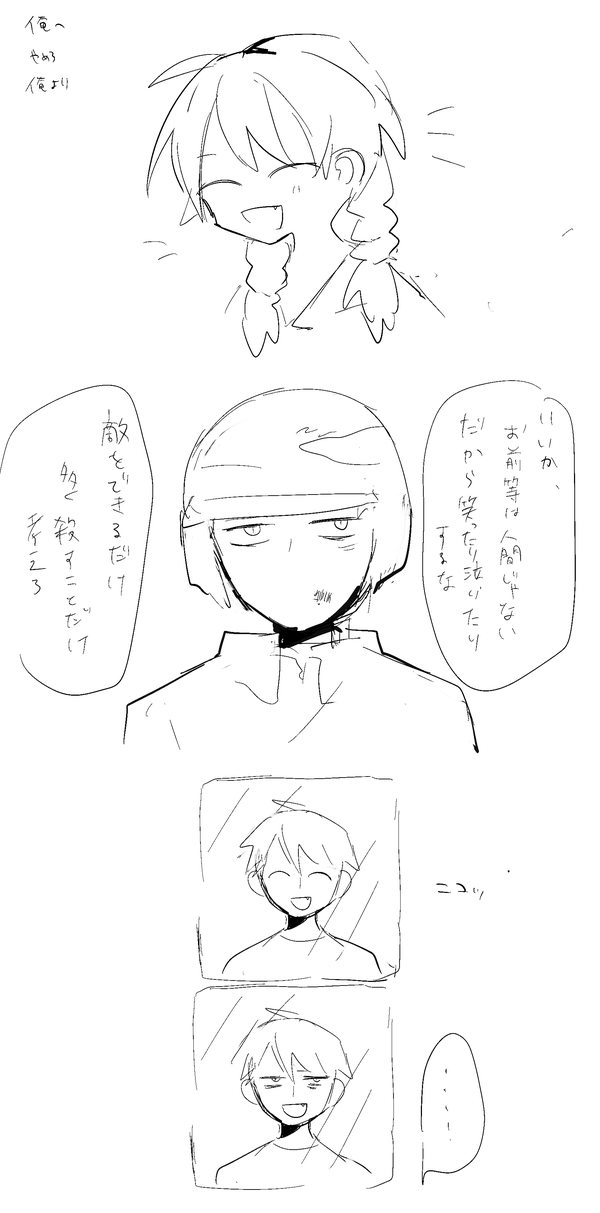 俺へ
やめろ
俺より
いいか、
お前等は人間じゃない
だから笑ったり泣いたり
するな
敵をできるだけ
多く殺すことだけ
考えろ
ニコッ
・・・・!